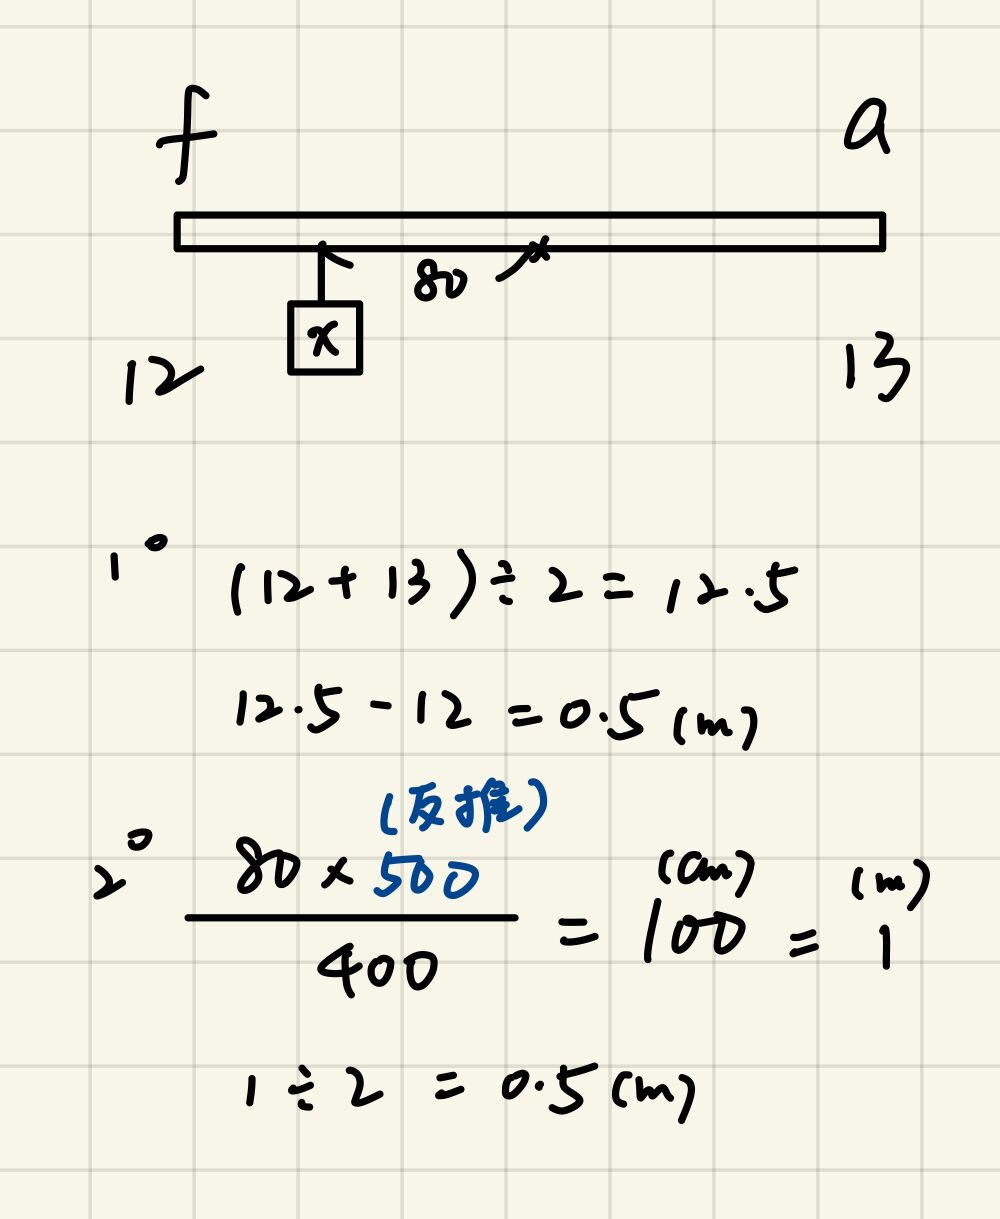 f a
80
x
12 13
1° (12+13)÷2=12.5
12.5-12=0.5(m)
(反推)
2° 80×500/400 = 100(cm) = 1(m)
1÷2=0.5(m)